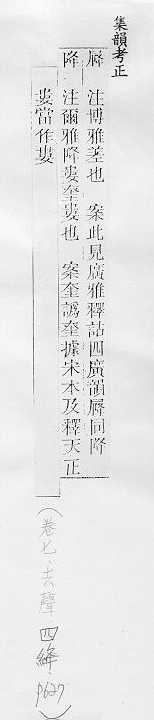 集韻考正
屪　注博雅袶也　案此見廣雅釋詁四廣韻屪同降
降　注爾雅降婁奎婁也　案奎譌奎據宋本及釋天正
婁當作婁
（卷七、去聲、四絳、p627）